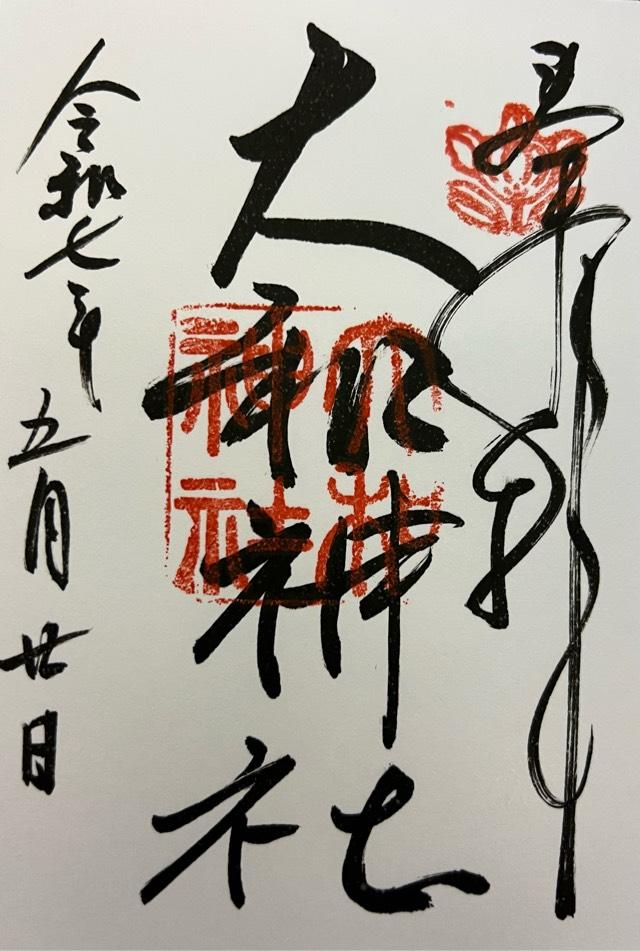 奉拝
大和神社
大和神社
令和七年五月廿日